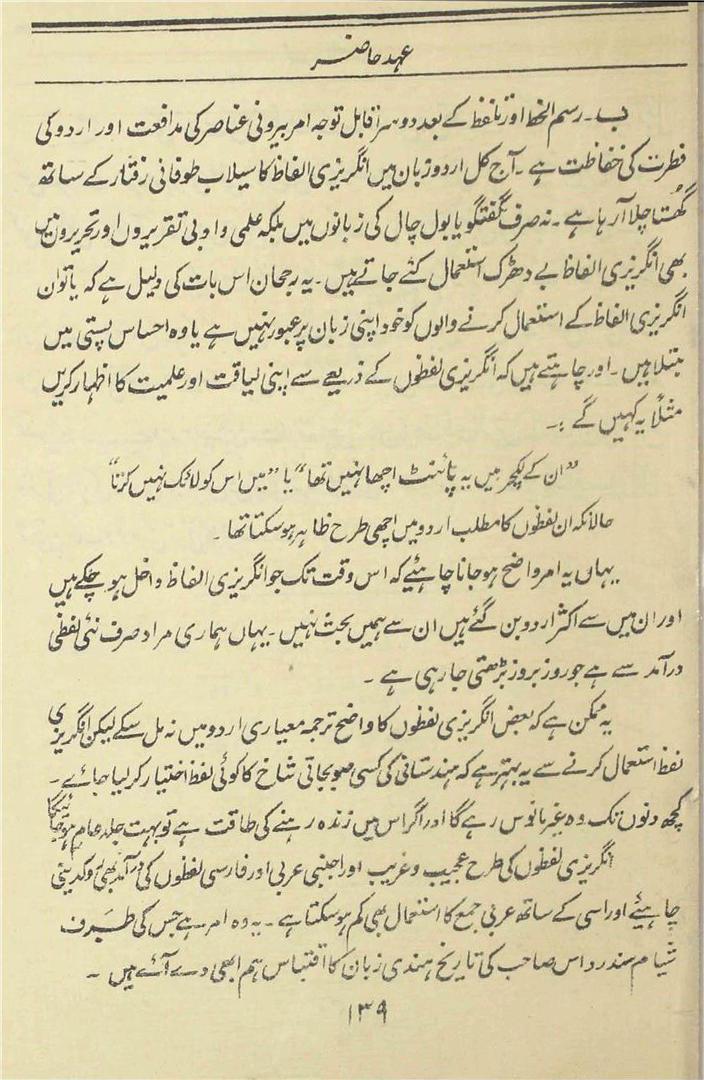 عہد حاضر
ب۔ رسم الخط اور تلفظ کے بعد دوسرا قابل توجہ امر بیرونی عناصر کی مدافعت اور اردو کی
فطرت کی حفاظت ہے ۔ آج کل اردو زبان میں انگریزی الفاظ کا سیلاب طوفانی رفتار کے ساتھ
گھُستا چلا آ رہا ہے ۔ نہ صرف گفتگو یا بول چال کی زبانوں میں بلکہ علمی و ادبی تقریروں اور تحریروں میں
بھی انگریزی الفاظ بے دھڑک استعمال کئے جاتے ہیں ۔ یہ رجحان اس بات کی دلیل ہے کہ یا تو ان
انگریزی الفاظ کے استعمال کرنے والوں کو خود اپنی زبان پر عبور نہیں ہے یا وہ احساس پستی میں
مبتلا ہیں ۔ اور چاہتے ہیں کہ انگریزی لفظوں کے ذریعے سے اپنی لیاقت اور علمیت کا اظہار کریں
مثلاً یہ کہیں گے :۔
”ان کے لکچر میں یہ پائنٹ اچھا نہیں تھا“ یا ”میں اس کو لائک نہیں کرتا“
حالانکہ ان لفظوں کا مطلب اردو میں اچھی طرح ظاہر ہو سکتا تھا ۔
یہاں یہ امر واضح ہو جانا چاہئیے کہ اس وقت تک جو انگریزی الفاظ داخل ہو چکے ہیں
اور ان میں سے اکثر اردو بن گئے ہیں ان سے ہمیں بحث نہیں ۔ یہاں ہماری مراد صرف نئی لفظی
درآمد سے ہے جو روز بروز بڑھتی جا رہی ہے ۔
یہ ممکن ہے کہ بعض انگریزی لفظوں کا واضح ترجمہ معیاری اردو میں نہ مل سکے لیکن انگریزی
لفظ استعمال کرنے سے یہ بہتر ہے کہ ہندستانی کی کسی صوبجاتی شاخ کا کوئی لفظ اختیار کر لیا جائے ۔
کچھ دنوں تک وہ غیر مانوس رہے گا اور اگر اس میں زندہ رہنے کی طاقت ہے تو بہت جلد عام ہو جائیگا
انگریزی لفظوں کی طرح عجیب و غریب اور اجنبی عربی اور فارسی لفظوں کی درآمد بھی روکدینی
چاہئیے اور اسی کے ساتھ عربی جمع کا استعمال بھی کم ہو سکتا ہے ۔ یہ وہ امر ہے جس کی طرف
شیام سندر داس صاحب کی تاریخ ہندی زبان کا اقتباس ہم ابھی دے آئے ہیں ۔
۱۳۹